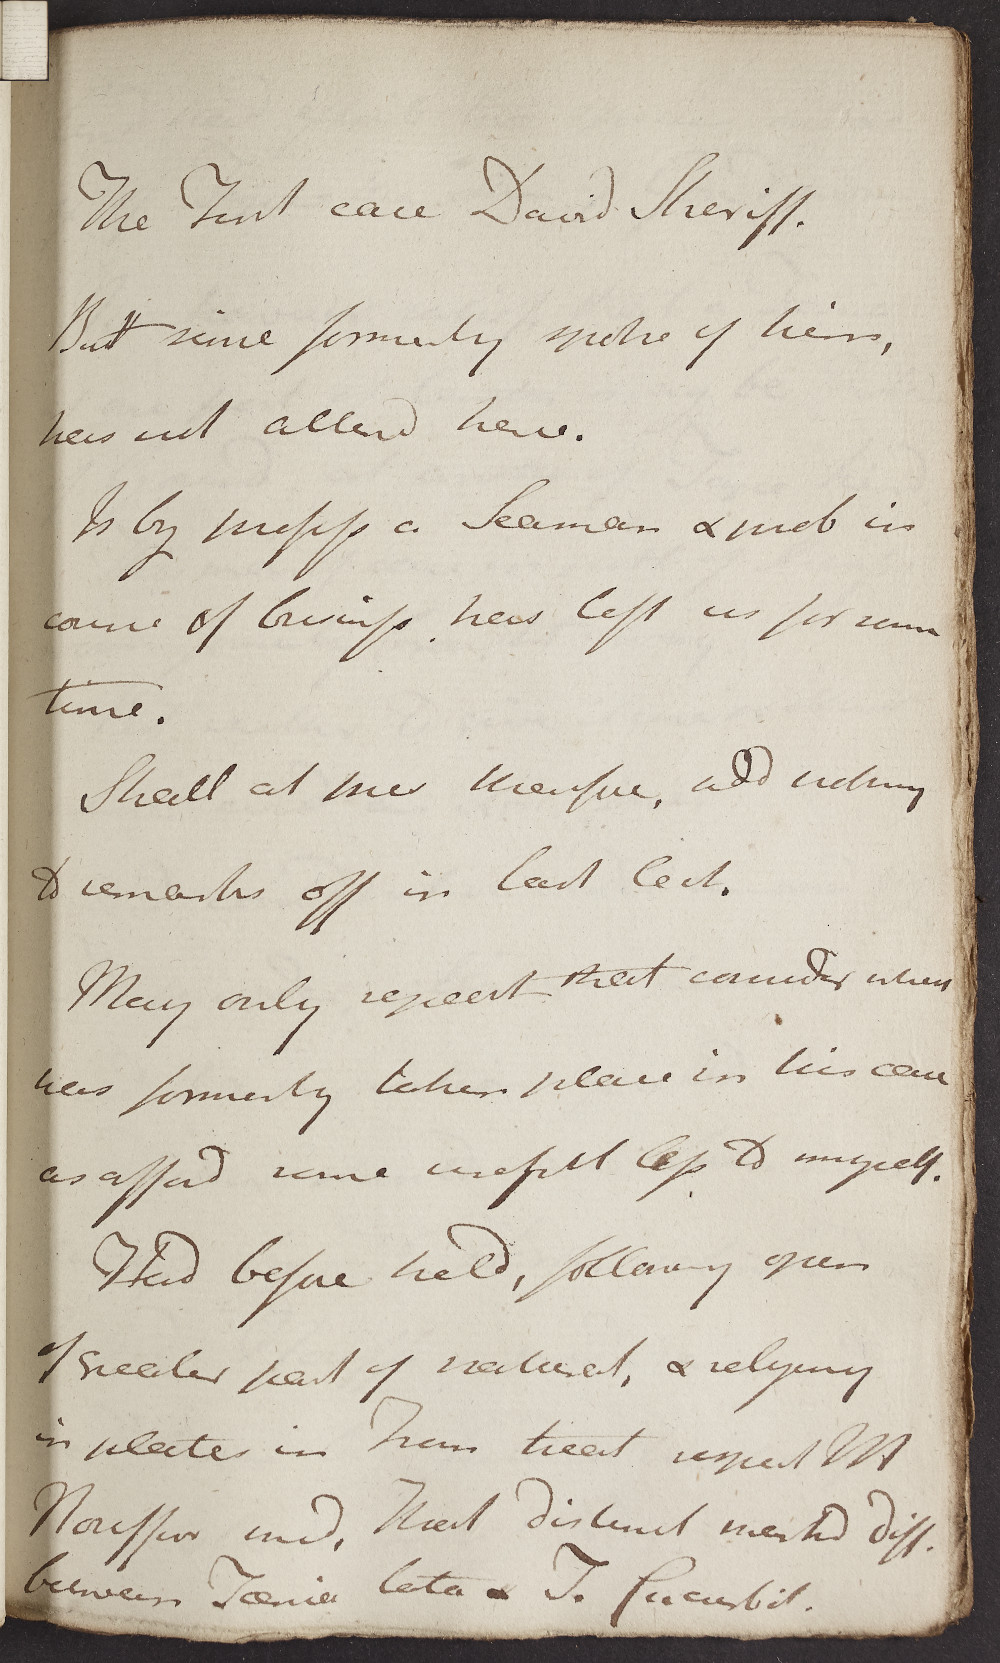 The First case David Sheriff.
But since formerly spoke of him,
has not attend here.
Is by profess a Seaman & prob in
course of business has left us for some
time.
Shall at pres therefore, add nothing
to remarks off in last lect.
May only repeat that consider what
has formerly taken place in his case
as afford some usefull less to myself.
Had before held, following opin
of greater part of naturalist, & relying
in plates in Fren treat respect M
Nouffer med, that distinct marked diff.
between Tænia lata & T. Cucurbit.